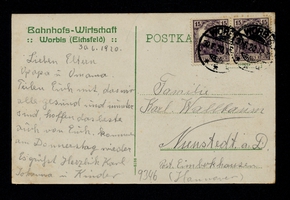 Bahnhofs-Wirtschaft
:: Worbis (Eichsfeld) ::
30.6.1920.
POSTKA
Lieben Eltern
Opapa u Omama.
Teilen Euch mit das wir
alle gesund und munter
sind, hoffen das beste
Euch, kommen
am Donnerstag wieder
Es grüßt Herzlich Karl
Johanna u Kinder
Familie
Karl Wallbaum
Nienstedt a. D.
Post Eimbekhausen
(Hannover)
15
15